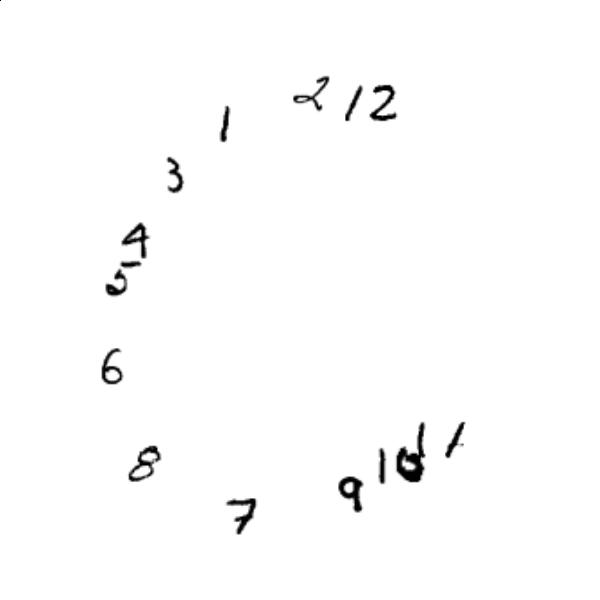 2 12
1
3
4
5
6
8
7
9
10
11